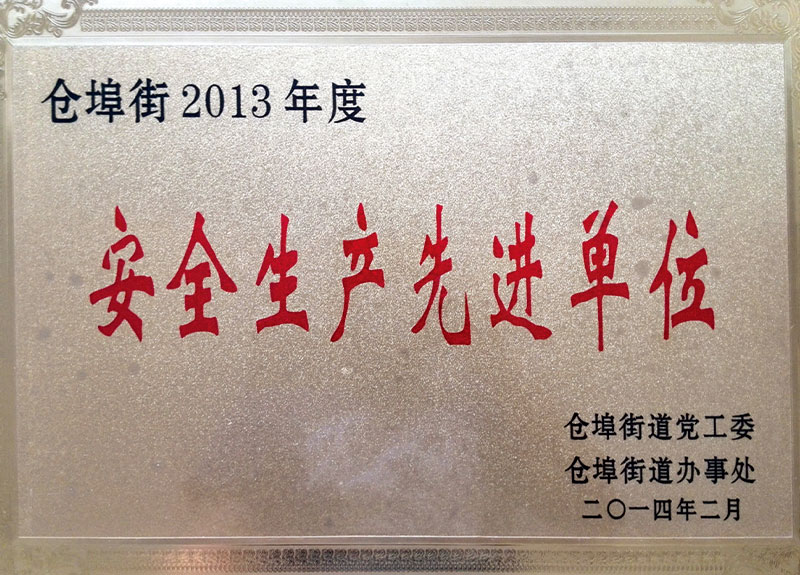 仓埠街2013年度
安全生产先进单位
仓埠街道党工委
仓埠街道办事处
二〇一四年二月